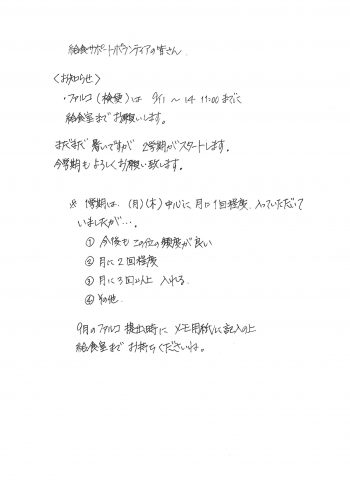 給食サポートボランティアの皆さん
〈お知らせ〉
・ファルコ(検便)は 9/11 〜 14 11:00までに
給食室までお願いします。
まだまだ 暑いですが 2学期がスタートします。
今学期もよろしくお願い致します。
※ 1学期は、(月)(木)中心に 月に1回程度、入っていただいて
いましたが…。
① 今後も この位の頻度が良い
② 月に2回程度
③ 月に3回以上 入れる
④ その他
9月のファルコ 提出時に メモ用紙に記入の上
給食室まで お持ちくださいね。